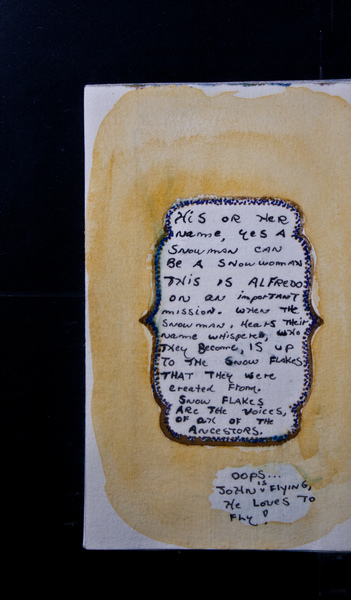 HiS OR HeR
Name, YeS A
SNOWMAN CAN
Be A SNOWWOMAN
THIS IS ALFREDO
ON AN IMPORTANT
mission. WHEN THE
SNOWMAN, HeARS THeiR
NAMe WHISPERED, WHO
THEY BeCOMe, IS UP
TO THE SNOW FLAKES
THAT THEY WeRe
CReATeD FROM.
SNOW FLAKES
ARe THe VOiCeS,
OF ALL OF THE
ANCESTORS.
OOPS...
JOHN IS FLYING,
He LOVeS TO
FLY!